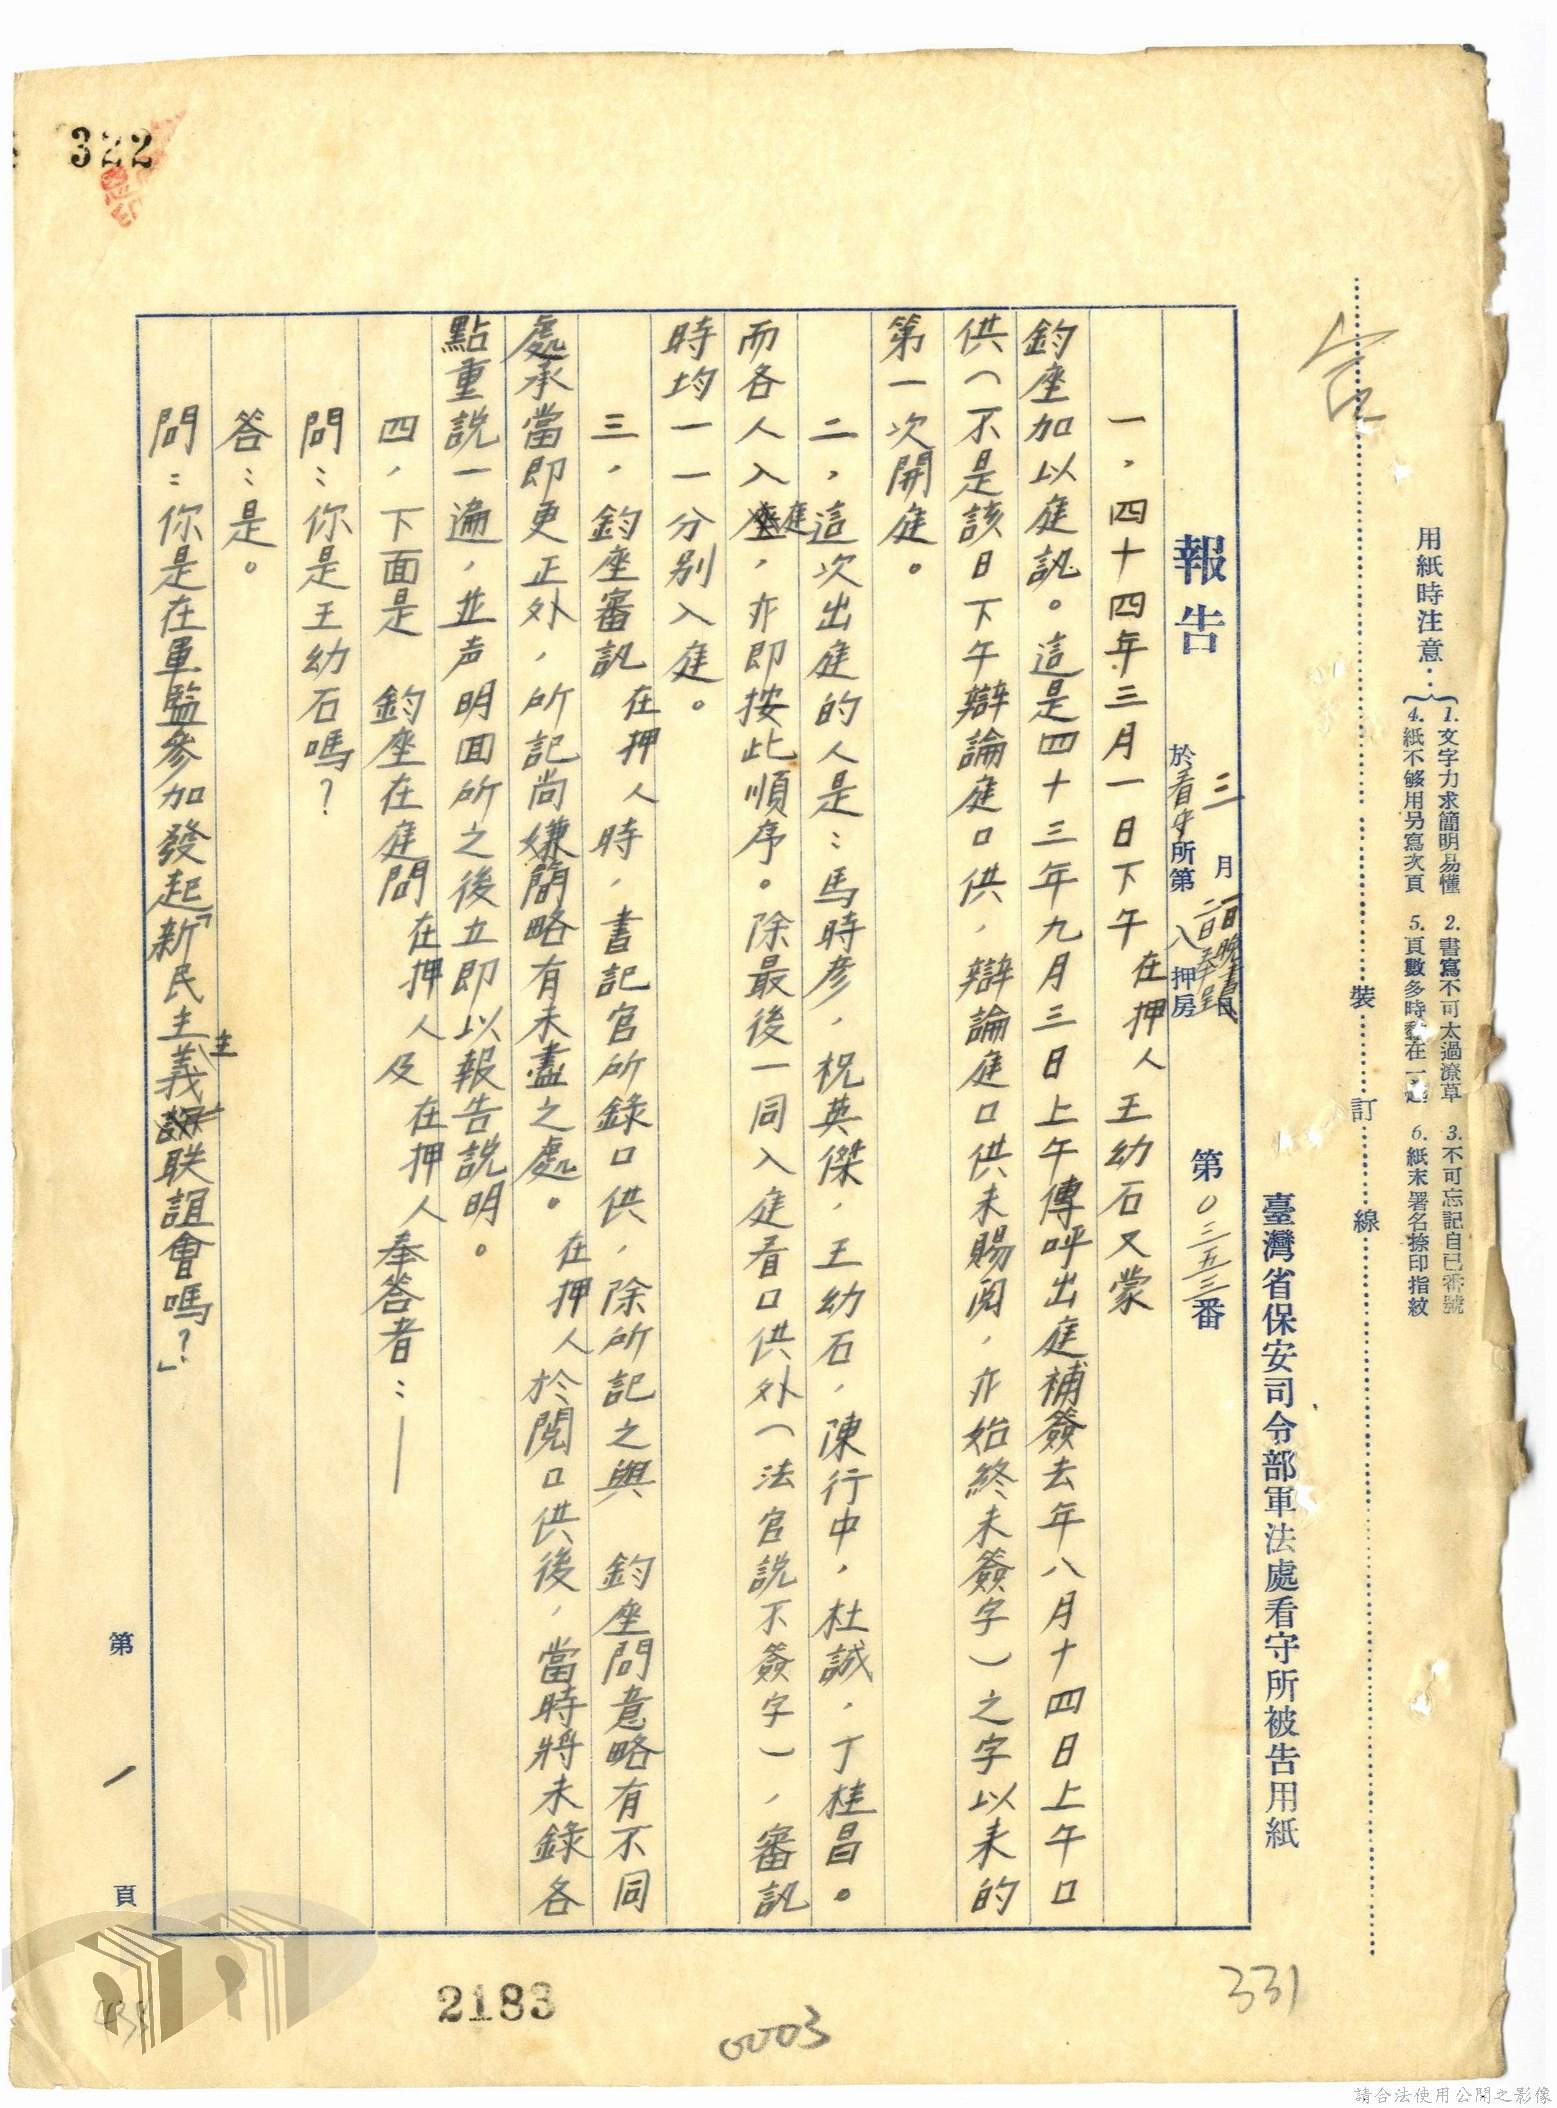 用紙時注意：
1. 文字力求簡明易懂　2. 書寫不可太過潦草　3. 不可忘記自己番號
4. 紙不够用另寫次頁　5. 頁數多時黏在一起　6. 紙末署名捺印指紋
裝　訂　線
臺灣省保安司令部軍法處看守所被告用紙
報告　三月
於看守所第八押房　第０三五三番
一，四十四年三月一日下午　在押人王幼石又蒙
鈞座加以庭訊。這是四十三年九月三日上午傳呼出庭補簽去年八月十四日上午口
供（不是該日下午辯論庭口供，辯論庭口供未賜閱，亦始終未簽字）之字以來的
第一次開庭。
二，這次出庭的人是：馬時彥，祝英傑，王幼石，陳行中，杜誠，丁桂昌。
而各人入庭，亦即按此順序。除最後一同入庭看口供外（法官說不簽字），審訊
時均一一分別入庭。
三，鈞座審訊　在押人時，書記官所錄口供，除所記之與　鈞座問意略有不同
處承當即更正外，所記尚嫌簡略有未盡之處。　在押人於閱口供後，當時將未錄各
點重說一遍，並声明回所之後立即以報告說明。
四，下面是　鈞座在庭問　在押人及　在押人奉答者：—
問：你是王幼石嗎？
答：是。
問：你是在軍監參加發起「新民主主義聯誼會嗎？」
第　1　頁
322
331
2183
0003
請合法使用公開之影像